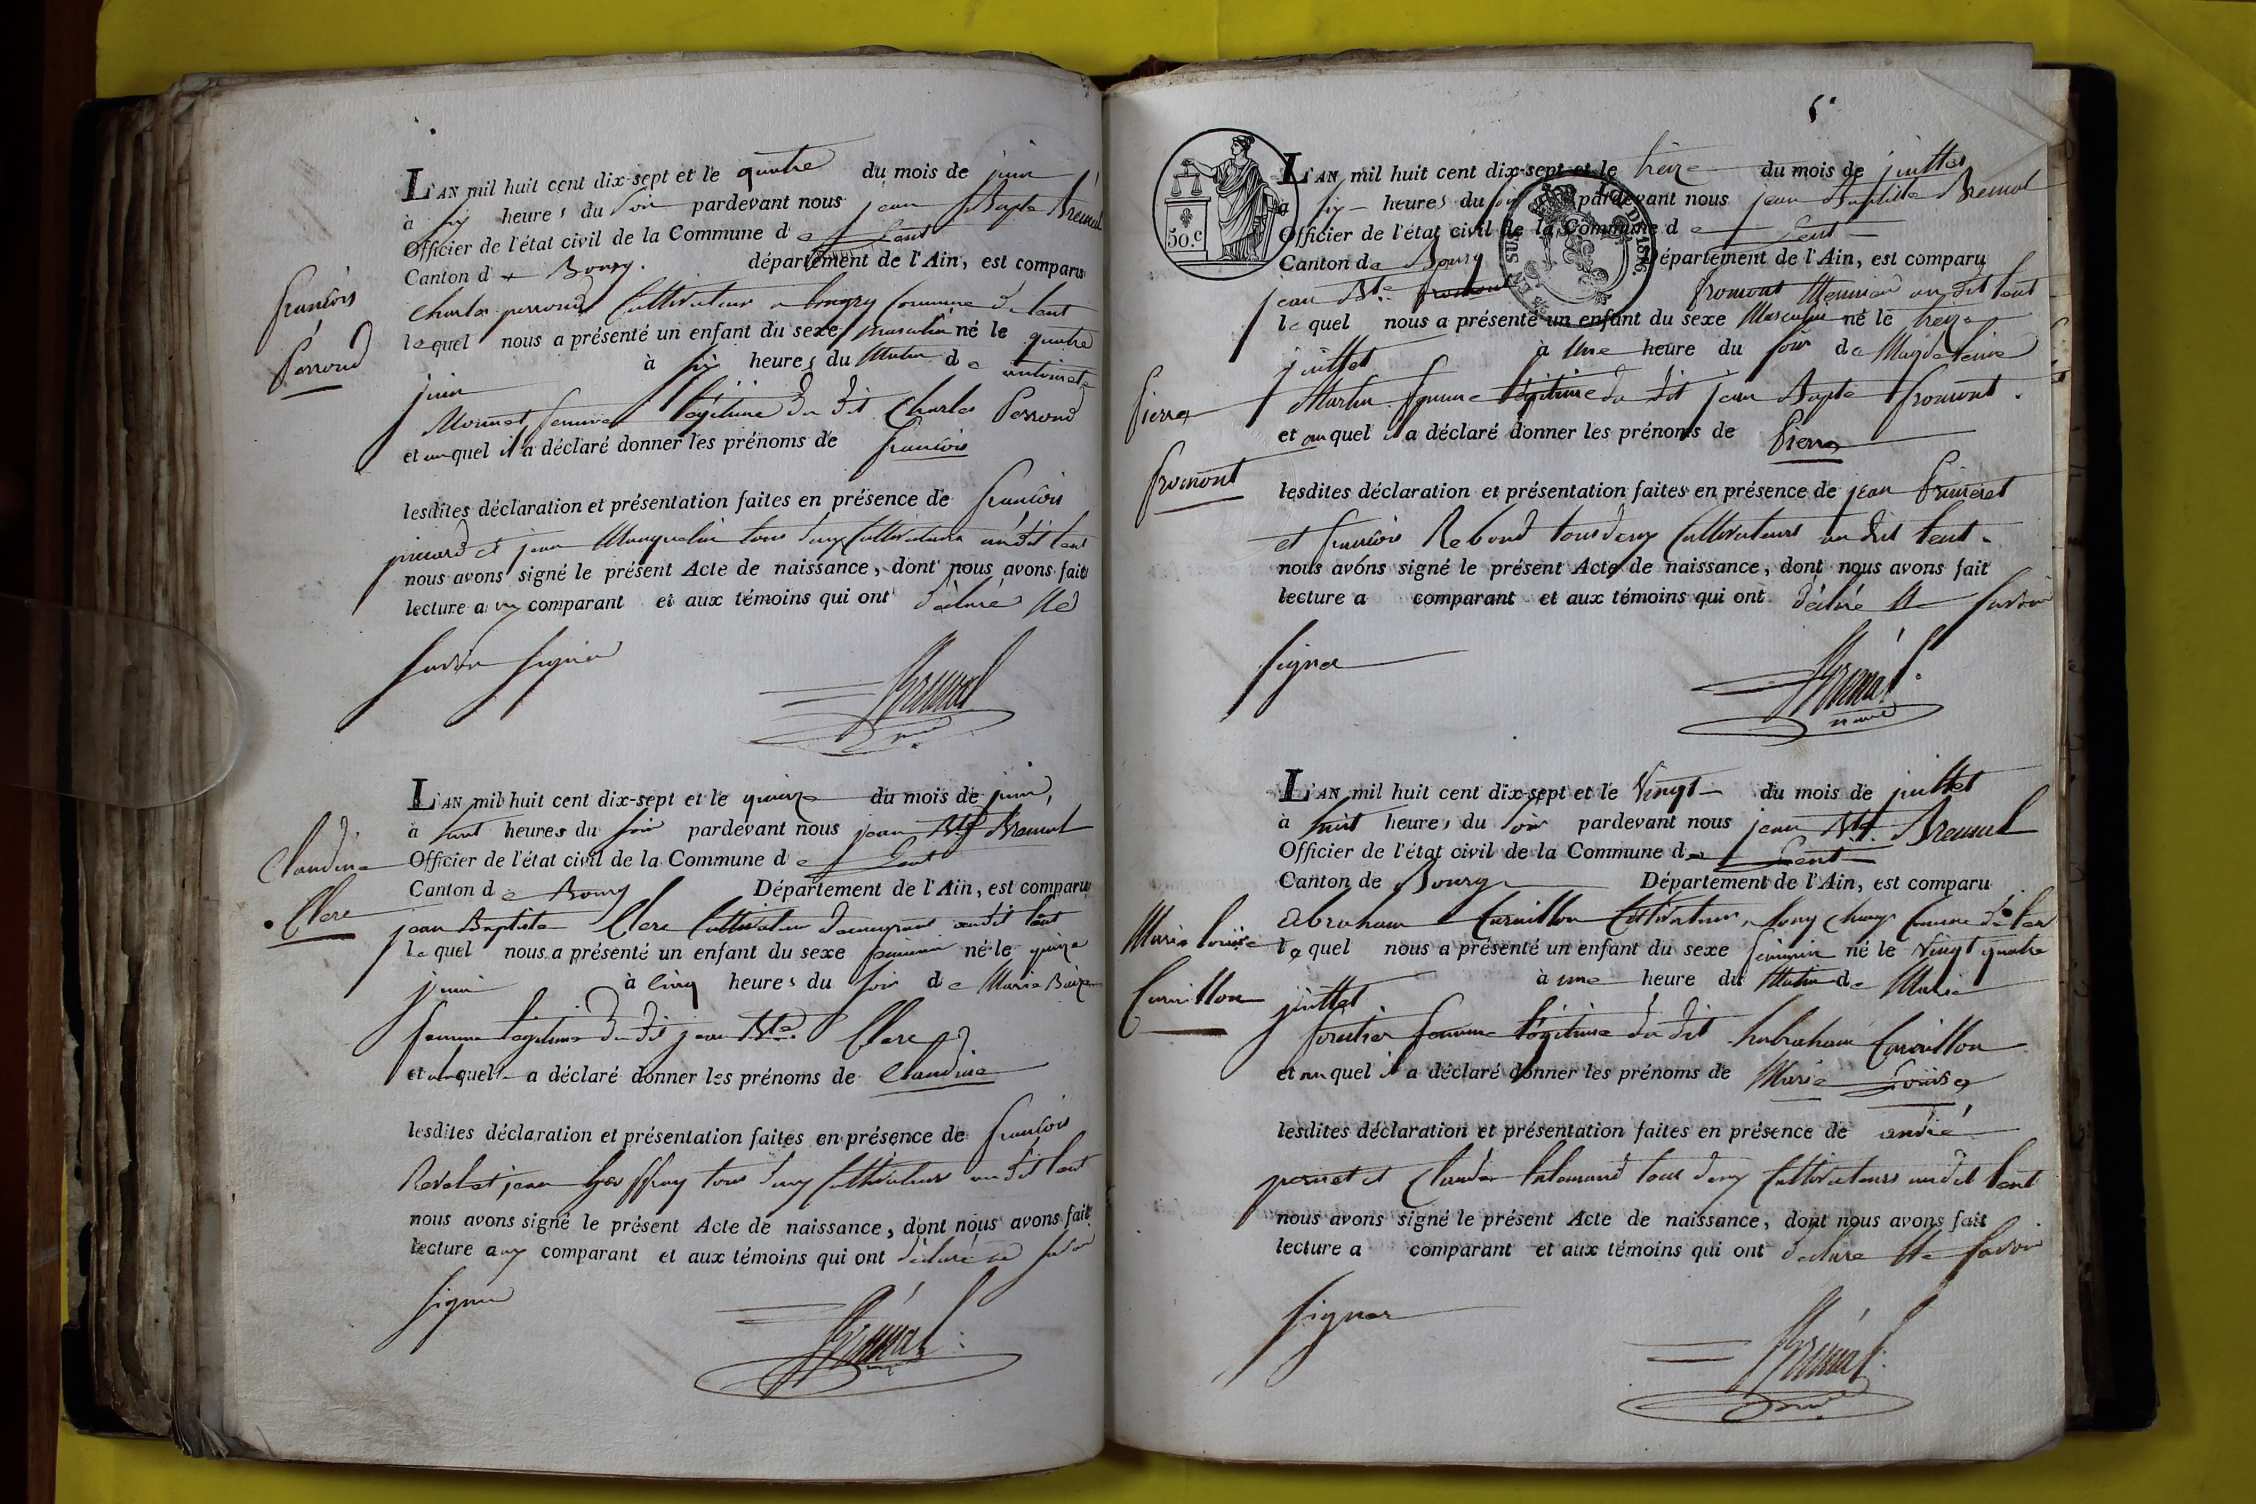 François
Perroud
L'AN mil huit cent dix-sept et le quatre du mois de juin
à six heures du soir pardevant nous jean Bapte Brevnal
Officier de l'état civil de la Commune de Lent
Canton de Bourg. département de l'Ain, est comparu
Charles perroud Cultivateur a longry Commune de lent
lequel nous a présenté un enfant du sexe masculin né le quatre
juin à six heures du Matin de antoinette
Monnet femme légitime du dit Charles Perroud
et auquel il a déclaré donner les prénoms de François
lesdites déclaration et présentation faites en présence de François
et jean tous deux Cultivateurs audit lent
nous avons signé le présent Acte de naissance, dont nous avons fait
lecture au comparant et aux témoins qui ont déclaré Ne
savoir signer
Claudine
Clerc
L'AN mil huit cent dix-sept et le quinze du mois de juin,
à huit heures du soir pardevant nous jean Bte
Officier de l'état civil de la Commune de Lent
Canton de Bourg Département de l'Ain, est comparu
jean Baptiste Clerc Cultivateur demeurant audit lent
lequel nous a présenté un enfant du sexe feminin né le quinze
juin à cinq heures du soir de Marie
femme légitime du dit jean Bte Clerc
et a déclaré donner les prénoms de Claudine
lesdites déclaration et présentation faites en présence de François
Revel et jean Geoffray tous deux Cultivateurs audit lent
nous avons signé le présent Acte de naissance, dont nous avons fait
lecture au comparant et aux témoins qui ont déclaré ne savoir
signer
5.
50.c
EN SUS
DE 1816.
Pierre
fromont
L'AN mil huit cent dix-sept et le treize du mois de juillet
à six heures du soir pardevant nous jean Baptiste
Officier de l'état civil de la Commune de Lent
Canton de Bourg Département de l'Ain, est comparu
jean Bte fromont fromont Meunier audit lent
lequel nous a présenté un enfant du sexe Masculin né le treize
juillet à Une heure du soir de Magdeleine
Martin femme légitime du dit jean Bapte fromont.
et auquel il a déclaré donner les prénoms de Pierre
lesdites déclaration et présentation faites en présence de jean
et François Rebond tous deux Cultivateurs audit lent.
nous avons signé le présent Acte de naissance, dont nous avons fait
lecture a comparant et aux témoins qui ont déclaré Ne savoir
signer
Marie louise
Curvillon
L'AN mil huit cent dix-sept et le Vingt du mois de juillet
à huit heures du soir pardevant nous jean Bte
Officier de l'état civil de la Commune de Lent
Canton de Bourg Département de l'Ain, est comparu
abraham Cultivateur a long champ Commune de lent
lequel nous a présenté un enfant du sexe feminin né le Vingt quatre
juillet à une heure du Matin de Marie
forestier femme légitime du dit
et auquel il a déclaré donner les prénoms de Marie Louise
lesdites déclaration et présentation faites en présence de andré
pernet et Claude tous deux Cultivateurs audit lent
nous avons signé le présent Acte de naissance, dont nous avons fait
lecture a comparant et aux témoins qui ont déclaré Ne savoir
signer